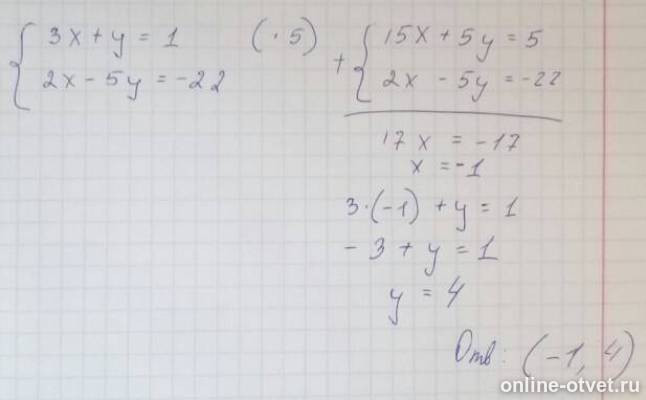 3x + y = 1 (· 5)
2x - 5y = -22
+ 15x + 5y = 5
2x - 5y = -22
17x = -17
x = -1
3·(-1) + y = 1
- 3 + y = 1
y = 4
Отв: (-1, 4)
online-otvet.ru